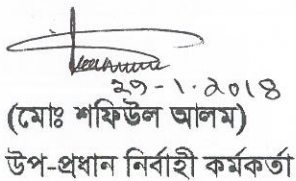 ২৯-১.2018
(মোঃ শফিউল আলম)
উপ-প্রধান নির্বাহী কর্মকর্তা